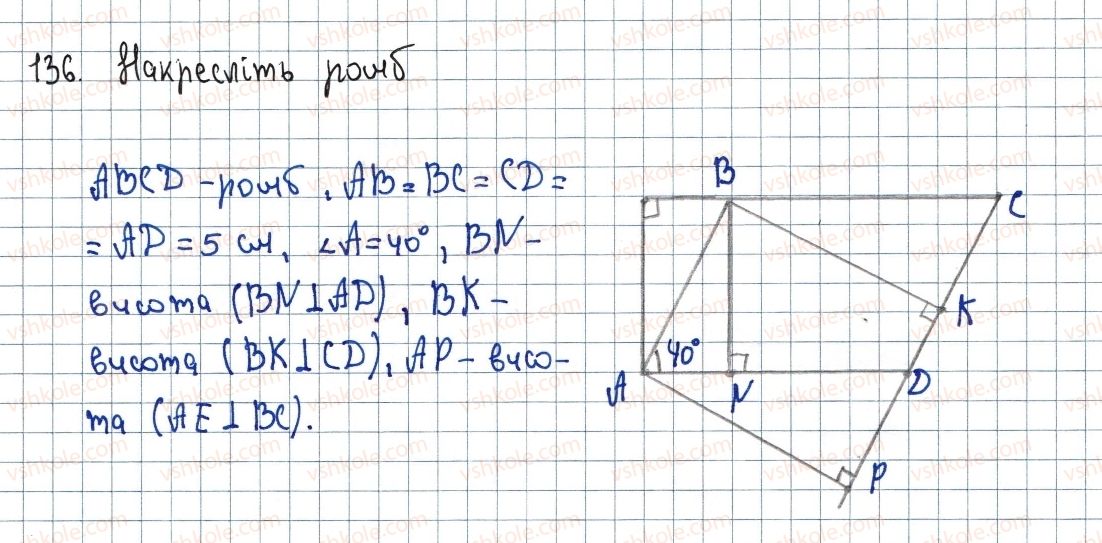 136. Накресліть ромб
ABCD - ромб, AB = BC = CD =
= AD = 5 см, ∠A = 40°, BN -
висота (BN ⊥ AD), BK -
висота (BK ⊥ CD), AP - висо-
та (AE ⊥ BC).
B
C
K
40°
A
N
D
P
vshkole.com